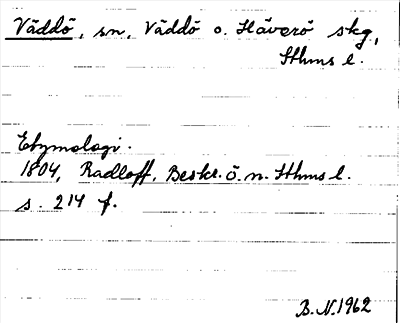 Väddö, sn, Väddö o. Häverö skg,
Sthms l.
Etymologi.
1804, Radloff, Beskr. ö. n. Sthms l.
s. 214 f.
B.N. 1962